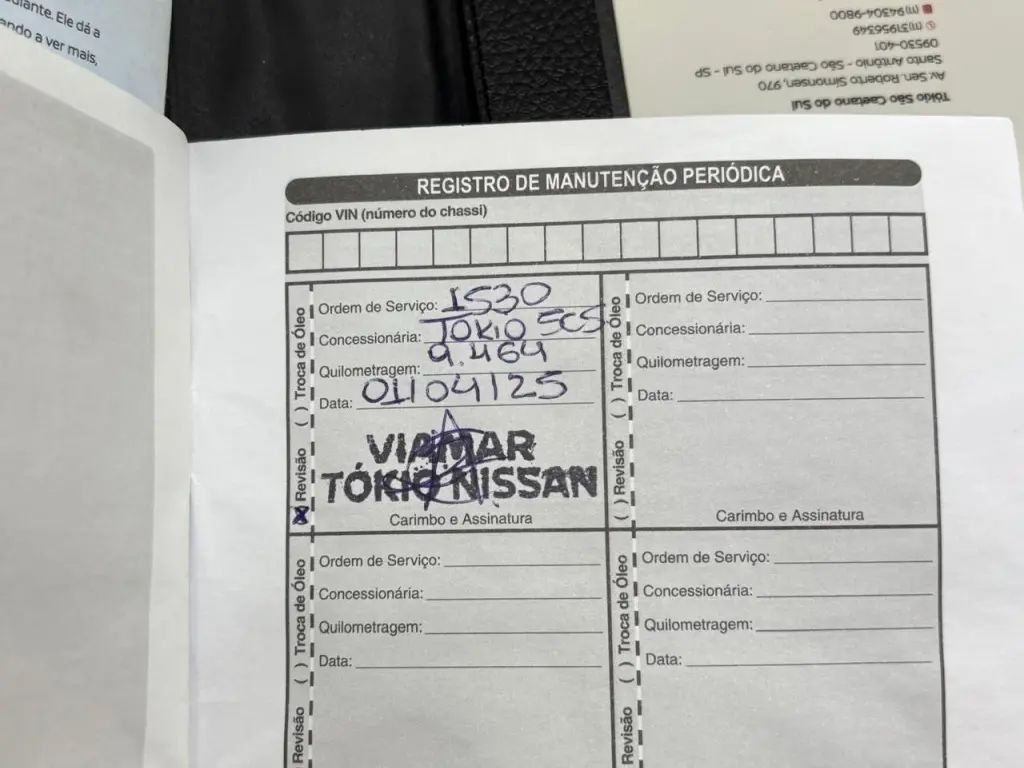 diante. Ele dá a
ando a ver mais,
Tókio São Caetano do Sul
Av. Sen. Roberto Simonsen, 970
Santo Antônio - São Caetano do Sul - SP
09530-401
(11) 31956349
(11) 94304-9800
REGISTRO DE MANUTENÇÃO PERIÓDICA
Código VIN (número do chassi)
( ) Troca de Óleo
(X) Revisão
Ordem de Serviço: 1530
Concessionária: TOKIO SCS
Quilometragem: 9.464
Data: 01/04/25
VIAMAR
TÓKIO NISSAN
Carimbo e Assinatura
( ) Troca de Óleo
( ) Revisão
Ordem de Serviço:
Concessionária:
Quilometragem:
Data:
Carimbo e Assinatura
( ) Troca de Óleo
Revisão
Ordem de Serviço:
Concessionária:
Quilometragem:
Data:
( ) Troca de Óleo
Revisão
Ordem de Serviço:
Concessionária:
Quilometragem:
Data: